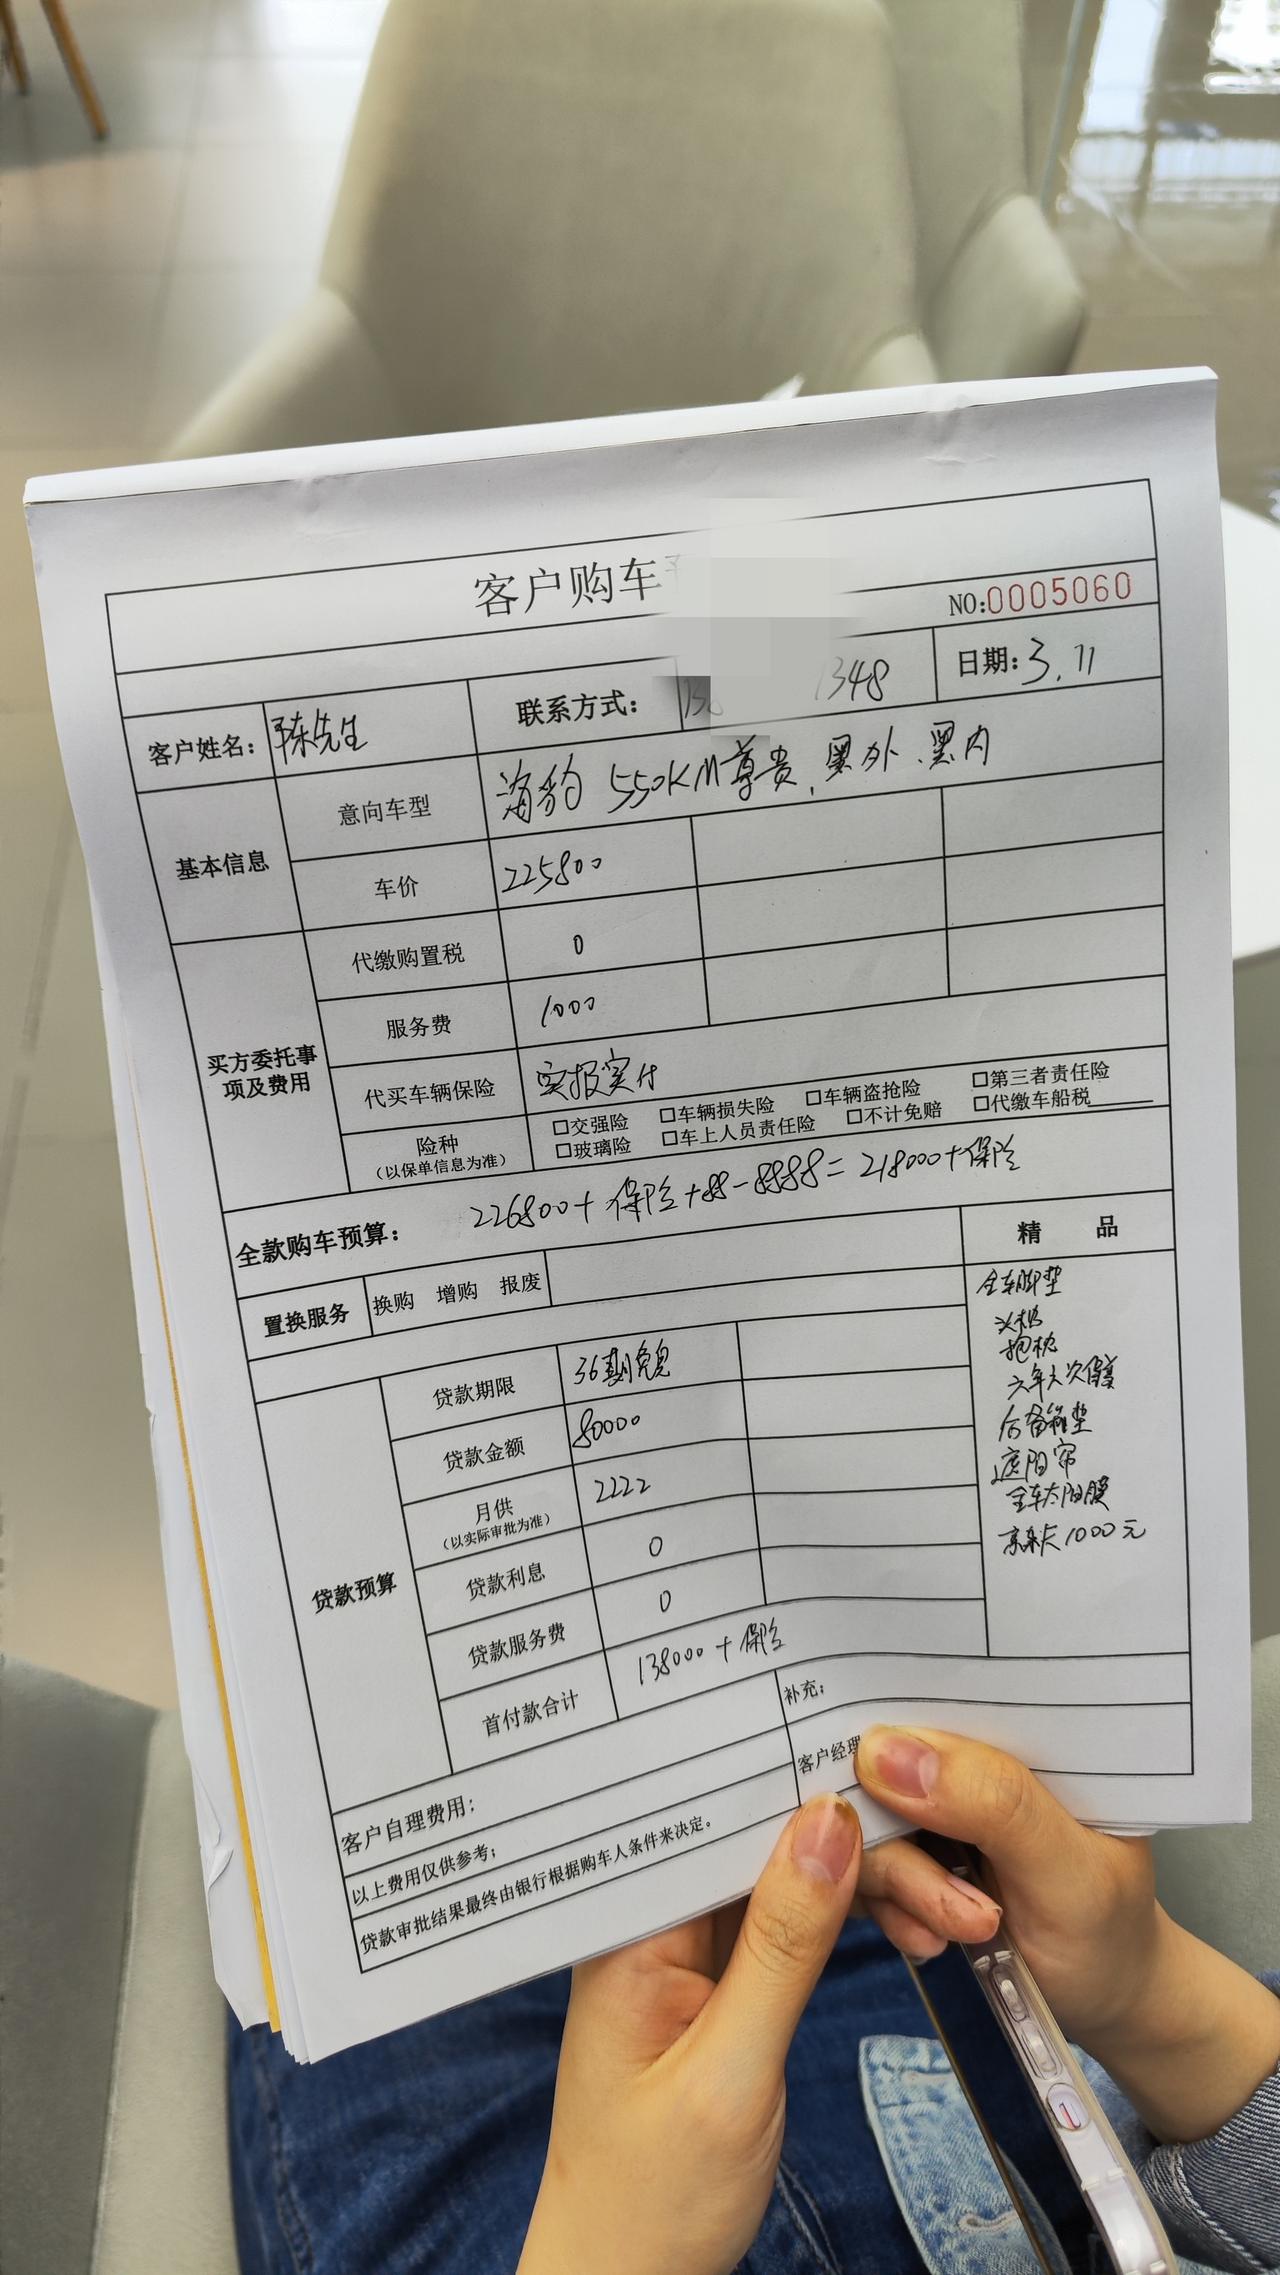 客户购车
NO:0005060
客户姓名: 陈先生 联系方式: 1348 日期:3.11
基本信息
意向车型 海豹 550KM尊贵,黑外、黑内
车价 225800
买方委托事项及费用
代缴购置税 0
服务费 1000
代买车辆保险 实报实付
险种
(以保单信息为准)
□交强险 □车辆损失险 □车辆盗抢险 □第三者责任险
□玻璃险 □车上人员责任险 □不计免赔 □代缴车船税
全款购车预算: 226800+保险+88-8888=218000+保险
置换服务 换购 增购 报废
精 品
全车脚垫
头枕
抱枕
六年六次保养
后备箱垫
遮阳帘
全车太阳膜
京东卡1000元
贷款预算
贷款期限 36期免息
贷款金额 80000
月供 2222
(以实际审批为准)
贷款利息 0
贷款服务费 0
首付款合计 138000+保险
客户自理费用:
补充:
以上费用仅供参考;
客户经理
贷款审批结果最终由银行根据购车人条件来决定。